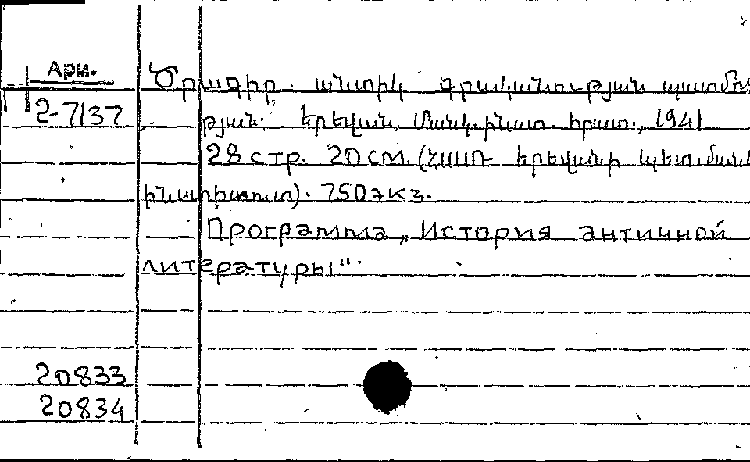 Арм.
2-7137
Ծրագիր անտիկ գրականության պատմու
թյան: Երեվան, Մանկ. ինստ. հրատ., 1941
28 стр. 20 см. (ՀՍՍՌ Երեվանի պետ. ման
ինստիտուտ). 750 экз.
Программа „История античной
литературы"
20833
20834